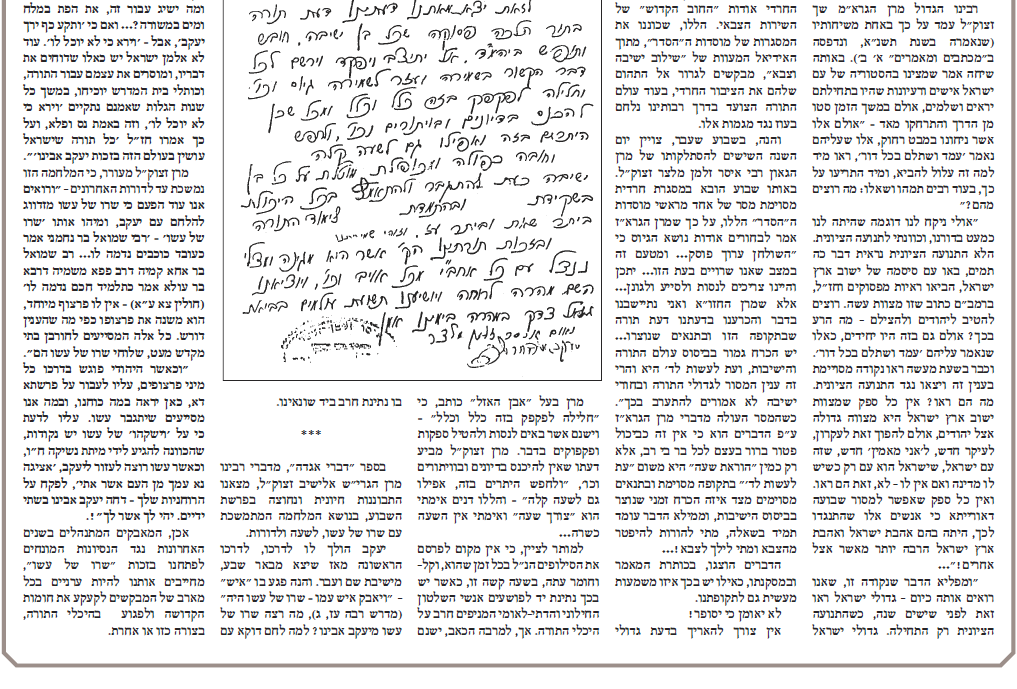 רבינו הגדול מרן הגרא״מ שך
זצוק״ל עמד על כך באחת משיחותיו
(שנאמרה בשנת תשנ״א, ונדפסה
ב״מכתבים ומאמרים״ א׳ ב׳). באותה
שיחה אמר שמצינו בהסטוריה של עם
ישראל אישים ורעיונות שהיו בתחילתם
יראים ושלמים, אולם במשך הזמן סטו
מן הדרך והתרחקו מאד – ״אולם אלו
אשר ניחונו במבט רחוק, אלו שעליהם
נאמר ׳עמד ושתלם בכל דור׳, ראו מיד
למה זה עלול להביא, ומיד התריעו על
כך, בעוד רבים תמהו ושאלו: מה רוצים
מהם?״
״אולי ניקח לנו דוגמה שהיתה לנו
כמעט בדורנו, וכוונתי לתנועה הציונית.
הלא התנועה הציונית נראית דבר כה
תמים, באו עם סיסמה של ישוב ארץ
ישראל, הביאו ראיות מפסוקים וחז״ל,
ברמב״ם כתוב שזו מצוות עשה. רוצים
להטיב ליהודים ולהצילם – מה הרע
בכך? אולם גם בזה היו יחידים, כאלו
שנאמר עליהם ׳עמד ושתלם בכל דור׳.
וכבר בשעת מעשה ראו נקודה מסויימת
בענין זה ויצאו נגד התנועה הציונית.
מה הם ראו? אין כל ספק שמצוות
ישוב ארץ ישראל היא מצווה גדולה
אצל יהודים, אולם להפוך זאת לעקרון,
לעיקר חדש, ל׳אני מאמין׳ חדש, שזה
עם ישראל, שישראל הוא עם רק כשיש
לו מדינה ואם אין לו – לא, זאת הם ראו.
ואין כל ספק שאפשר למסור שבועה
דאורייתא כי אנשים אלו שהתנגדו
לכך, היתה בהם אהבת ישראל ואהבת
ארץ ישראל הרבה יותר מאשר אצל
אחרים!״...
״ומפליא הדבר שנקודה זו, שאנו
רואים אותה כיום – גדולי ישראל ראו
זאת לפני שישים שנה, כשהתנועה
הציונית רק התחילה. גדולי ישראל
החרדי אודות ״החוב הקדוש״ של
השירות הצבאי. הללו, שכוננו את
המסגרות של מוסדות ה״הסדר״, מתוך
האידיאל המעוות של ״שילוב ישיבה
וצבא״, מבקשים לגרור אל התהום
שלהם את הציבור החרדי, בעוד עולם
התורה הצועד בדרך רבותינו נלחם
בעוז נגד מגמות אלו.
והנה, בשבוע שעבר, צויין יום
השנה השישים להסתלקותו של מרן
הגאון רבי איסר זלמן מלצר זצוק״ל.
באותו שבוע הובא במסגרת חרדית
מסוימת מסר של אחד מראשי מוסדות
ה״הסדר״ הללו, על כך שמרן הגרא״ז
אמר לבחורים אודות נושא הגיוס כי
״השולחן ערוך פוסק... ומטעם זה
במצב שאנו שרויים בעת הזו... יתכן
והיינו צריכים לנסות ולסייע ולגונן...
אלא שמרן החזו״א ואני נתיישבנו
בדבר והכרענו בדעתנו דעת תורה
שבתקופה הזו ובתנאים שנוצרו...
יש הכרח גמור בביסוס עולם התורה
והישיבות, ועת לעשות לד׳ היא והרי
זה ענין המסור לגדולי התורה ובחורי
ישיבה לא אמורים להתערב בכך״.
כשהמסר העולה מדברי מרן הגרא״ז
ע״פ הדברים הוא כי אין זה כביכול
פטור ברור בעצם לכל בר בי רב, אלא
רק כמין ״הוראת שעה״ היא משום ״עת
לעשות לד׳״ בתקופה מסוימת ובתנאים
מסוימים מצד איזה הכרח זמני שנוצר
בביסוס הישיבות, וממילא הדבר עומד
תמיד בשאלה, מתי להורות להיפטר
מהצבא ומתי לילך לצבא!...
הדברים הוצגו, בכותרת המאמר
ובמסקנתו, כאילו יש בכך איזו משמעות
מעשית גם לתקופתנו.
לא יאומן כי יסופר!
אין צורך להאריך בדעת גדולי
לזאת יצא מאתנו דעתינו דעת תורה
בתור הלכה פסוקה שכל בן ישיבה, חובש
דבר הקשור בשמירה ועזר לשמירה גיוס וכו׳.
וחלילה לפקפק בזה כלל וכלל ומכל שכן
להכנס בדיונים ובויתורים וכו׳, ולחפש
היתרים בזה ואפילו גם לשעה קלה
וחובה כפולה ומכופלת מוטלת על כל בן
ישיבה כעת להתגבר ולהתאמץ בכל היכולת
בשקידת ובהתמדת לימוד התורה
ביתר שאת וביתר עז,
ובזכות תורתינו הק׳ אשר היא מגינה ומצלי
ננצל עם כל אחב״י מכל אויב וכו׳, ויוציאנו
השם מהרה לרוחה ויושיענו תשועת עולמים בביאת
גואל צדק במהרה בימינו אמן
נאום איסר זלמן מלצר
מרן בעל ״אבן האזל״ כותב, כי
״חלילה לפקפק בזה כלל וכלל״ –
וישנם אשר באים לנסות ולהטיל ספקות
ופקפוקים בדבר. מרן זצוק״ל מביע
דעתו שאין להיכנס בדיונים ובוויתורים
וכו׳, ״ולחפש היתרים בזה, אפילו
גם לשעה קלה״ – והללו דנים אימתי
הוא ״צורך שעה״ ואימתי אין השעה
כשרה...
למותר לציין, כי אין מקום לפרסם
את הסילופים הנ״ל בכל זמן שהוא, וקל–
וחומר עתה, בשעה קשה זו, כאשר יש
בכך נתינת יד לפושעים אנשי השלטון
החילוני והדתי–לאומי המניפים חרב על
היכלי התורה. אך, למרבה הכאב, ישנם
בו נתינת חרב ביד שונאינו.
***
בספר ״דברי אגדה״, מדברי רבינו
מרן הגרי״ש אלישיב זצוק״ל, מצאנו
התבוננות חיונית ונחוצה בפרשת
השבוע, בנושא המלחמה המתמשכת
עם שרו של עשו, לשעה ולדורות.
יעקב הולך לו לדרכו, לדרכו
הראשונה מאז שיצא מבאר שבע,
מישיבת שם ועבר. והנה פגע בו ״איש״
– ״ויאבק איש עמו – שרו של עשו היה״
(מדרש רבה עז, ג), מה רצה שרו של
עשו מיעקב אבינו? למה לחם דוקא עם
ומה ישיג עבור זה, את הפת במלח
ומים במשורה?... ואם כי ׳ותקע כף ירך
יעקב׳, אבל – ׳וירא כי לא יוכל לו׳. עוד
לא אלמן ישראל יש כאלו שדוחים את
דבריו, ומוסרים את עצמם עבור התורה,
וכותלי בית המדרש יוכיחו, במשך כל
שנות הגלות שאמנם נתקיים ׳וירא כי
לא יוכל לו׳, וזה באמת נס ופלא, ועל
כך אמרו חז״ל ׳כל תורה שישראל
עושין בעולם הזה בזכות יעקב אבינו׳״.
מרן זצוק״ל מעורר, כי המלחמה הזו
נמשכת עד לדורות האחרונים – ״ורואים
אנו עוד הפעם כי שרו של עשו מזדווג
להלחם עם יעקב, ומיהו אותו ׳שרו
של עשו׳ – ׳רבי שמואל בר נחמני אמר
כעובד כוכבים נדמה לו... רב שמואל
בר אחא קמיה דרב פפא משמיה דרבא
בר עולא אמר כתלמיד חכם נדמה לו׳
(חולין צא ע״א) – אין לו פרצוף מיוחד,
הוא משנה את פרצופו כפי מה שהענין
דורש. כל אלה המסייעים לחורבן בתי
מקדש מעט, שלוחי שרו של עשו הם״.
״וכאשר היהודי פוגש בדרכו כל
מיני פרצופים, עליו לעבור על פרשתא
דא, כאן ידאה במה כוחנו, ובמה אנו
מסייעים שיתגבר עשו. עליו לדעת
כי על ׳וישקהו׳ של עשו יש נקודות,
שהכוונה להגיע לידי מיתת נשיקה ח״ו,
וכאשר עשו רוצה לעזור ליעקב, ׳אציגה
נא עמך מן העם אשר אתי׳, לפקח על
הרוחניות שלך – דחה יעקב אבינו בשתי
ידיים. יהי לך אשר לך״!.
אכן, המאבקים המתנהלים בשנים
האחרונות נגד הנסיונות המונחים
לפתחנו בזכות ״שרו של עשו״,
מחייבים אותנו להיות ערניים בכל
מארב של המבקשים לקעקע את חומות
הקדושה ולפגוע בהיכלי התורה,
בצורה כזו או אחרת.